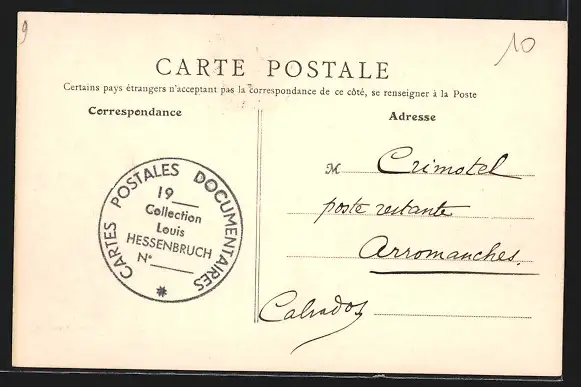 9
10
CARTE POSTALE
Certains pays étrangers n'acceptant pas la correspondance de ce côté, se renseigner à la Poste
Correspondance
Adresse
CARTES POSTALES DOCUMENTAIRES
19__
Collection
Louis
HESSENBRUCH
N°____
*
M Crimotel
poste restante
Arromanches.
Calvados